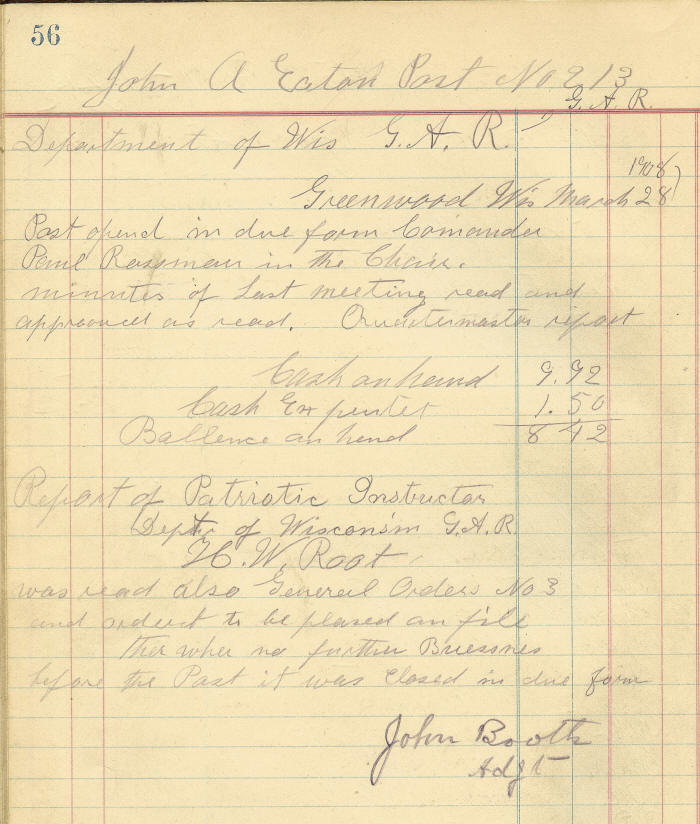 56
John A Eaton Post No 213
G. A. R.
Department of Wis G. A. R.
1908
Greenwood Wis March 28
Post opend in due form Comander
Paul Rossman in the Chair.
minutes of Last meeting read and
approoved as read. Quatermaster report
Cash on hand 9.92
Cash Expentet 1.50
Ballence on hend 8 42
Report of Patriotic Instructor
Dept of Wisconsin G.A.R.
H. W. Root
was read also General Orders No 3
and orderet to be plased on file
ther wher no further Buessnes
before the Post it was Closed in due form
John Booth
Adjt